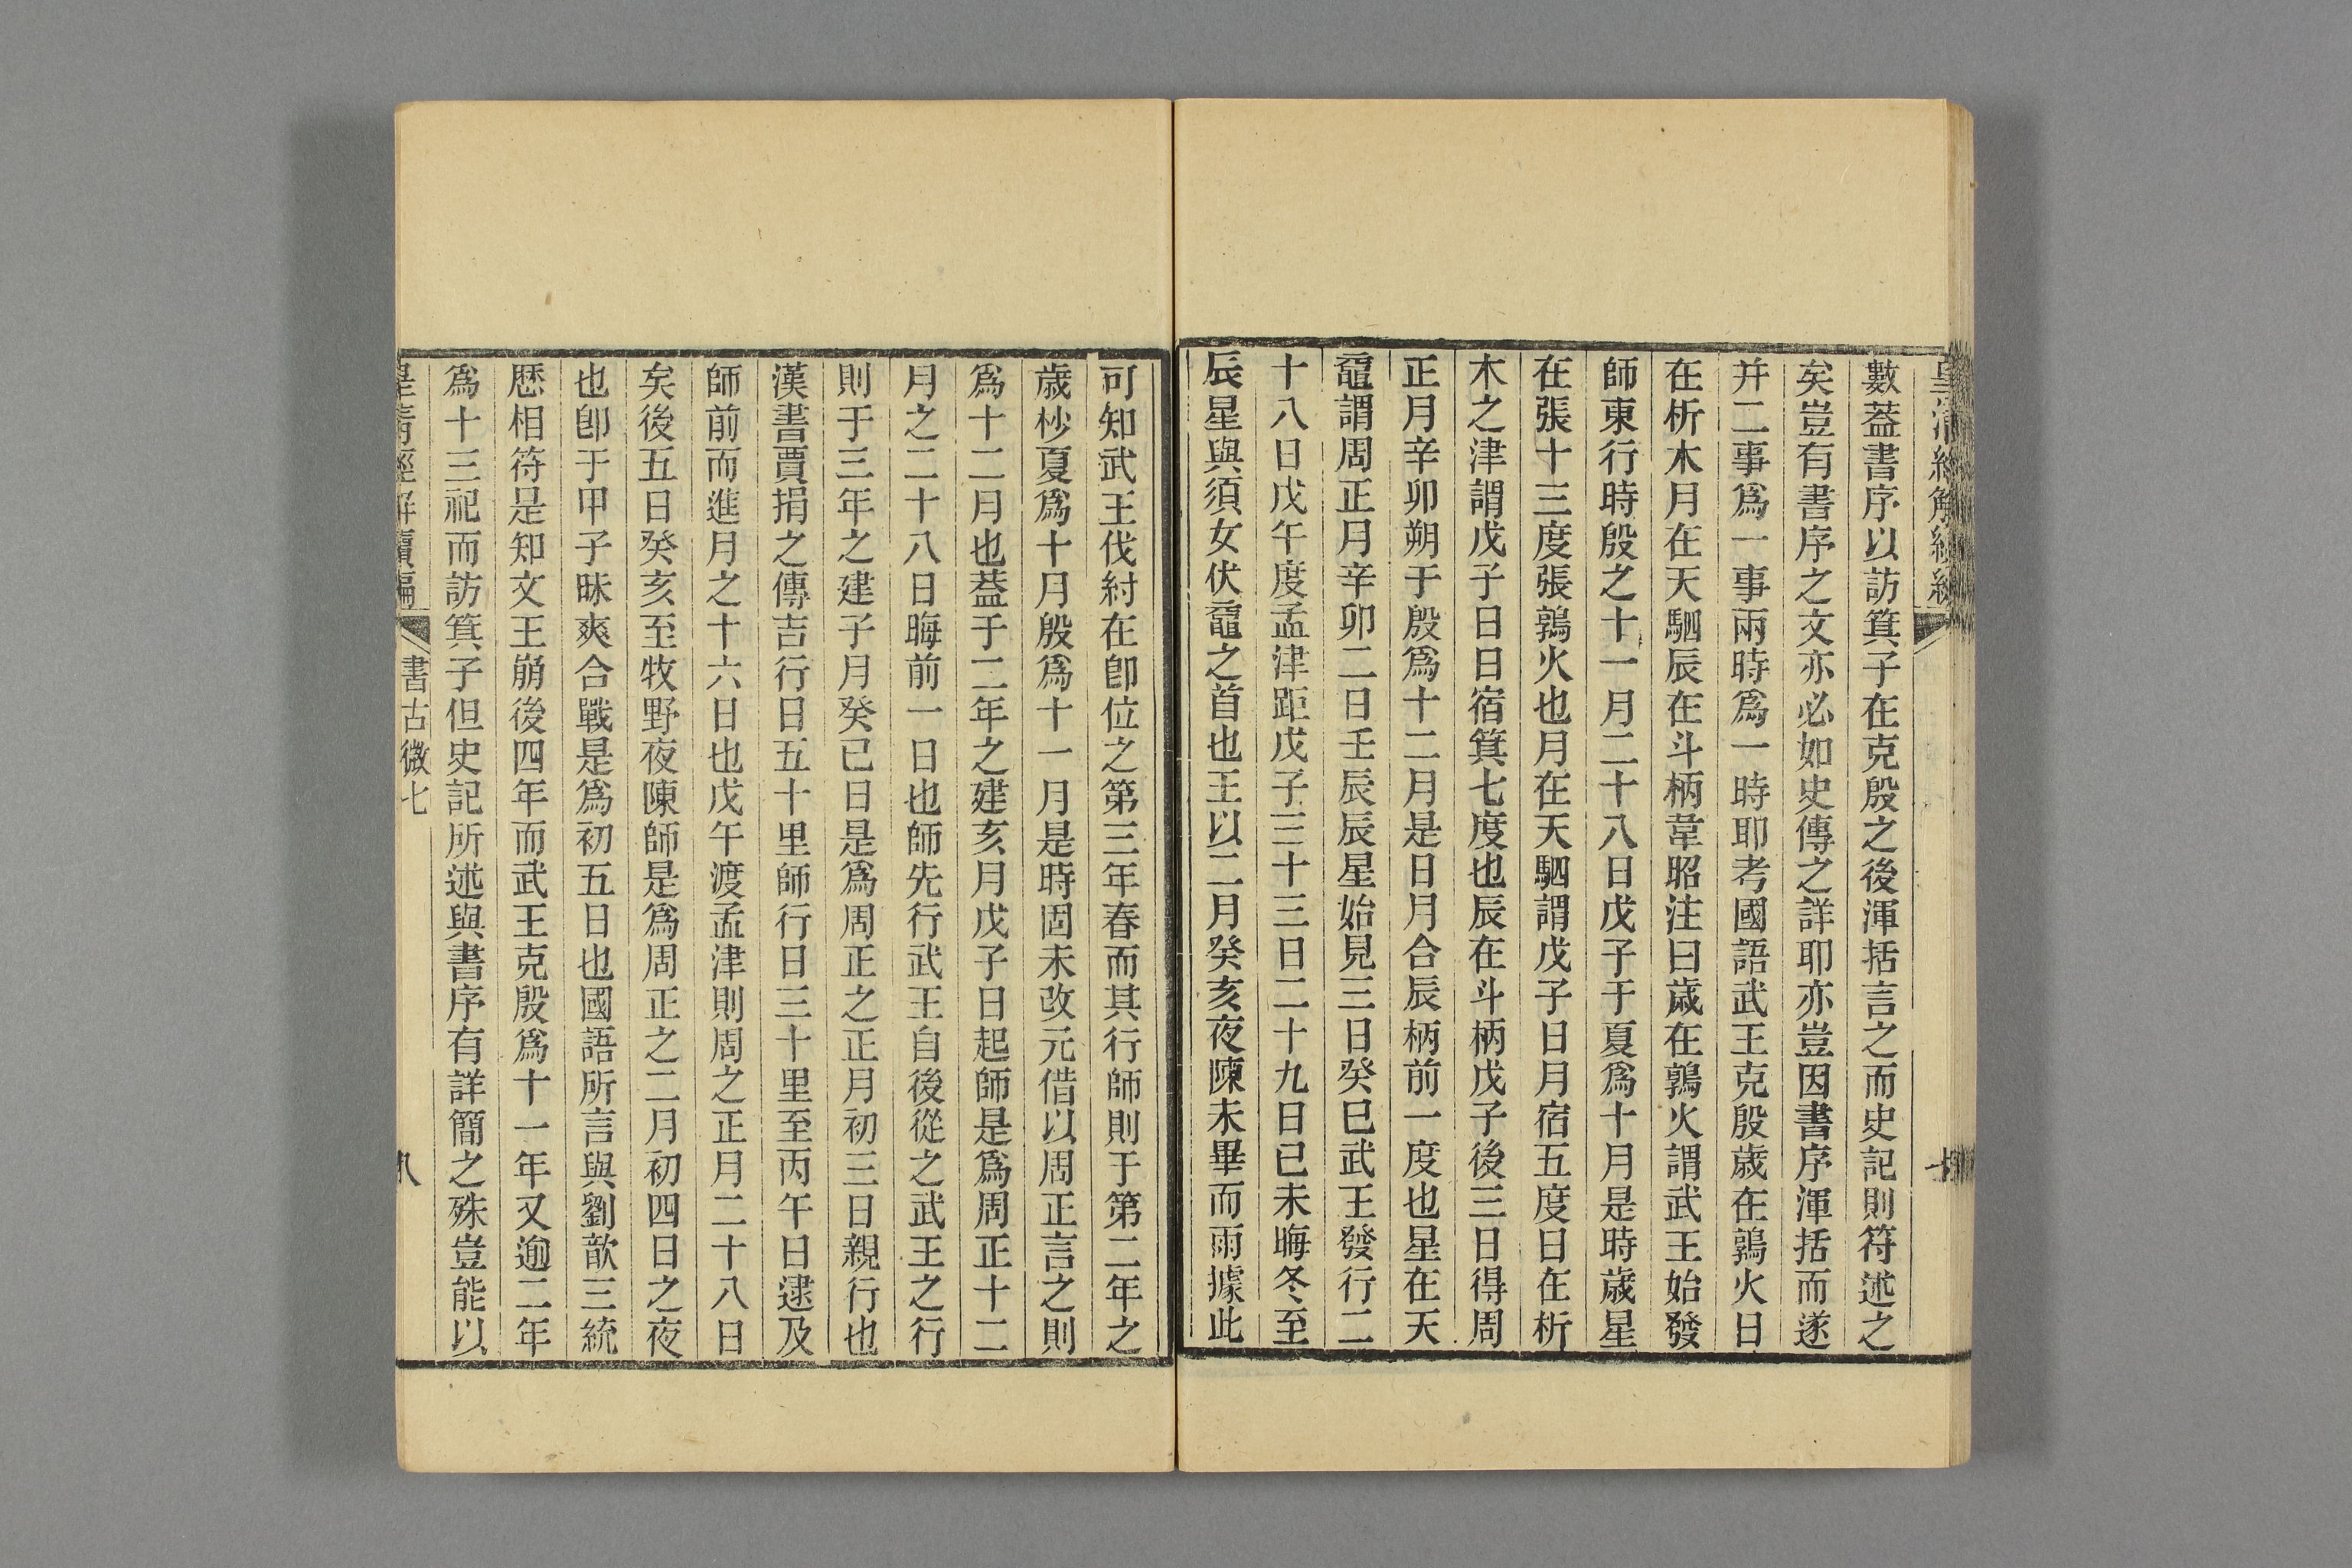 數葢書序以訪箕子在克殷之後渾括言之而史記則符述之
矣豈有書序之文亦必如史傳之詳耶亦豈因書序渾括而遂
并二事爲一事兩時爲一時耶考國語武王克殷歲在鶉火日
在析木月在天駟辰在斗柄韋昭注曰歲在鶉火謂武王始發
師東行時殷之十一月二十八日戊子于夏爲十月是時歲星
在張十三度張鶉火也月在天駟謂戊子日月宿五度日在析
木之津謂戊子日日宿箕七度也辰在斗柄戊子後三日得周
正月辛卯朔于殷爲十二月是日月合辰柄前一度也星在天
黿謂周正月辛卯二日壬辰辰星始見三日癸巳武王發行二
十八日戊午度孟津距戊子三十三日二十九日已未晦冬至
辰星與須女伏黿之首也王以二月癸亥夜陳未畢而雨據此
可知武王伐紂在卽位之第三年春而其行師則于第二年之
歲杪夏爲十月殷爲十一月是時固未改元借以周正言之則
爲十二月也葢于二年之建亥月戊子日起師是爲周正十二
月之二十八日晦前一日也師先行武王自後從之武王之行
則于三年之建子月癸已日是爲周正之正月初三日親行也
漢書賈捐之傳吉行日五十里師行日三十里至丙午日逮及
師前而進月之十六日也戊午渡孟津則周之正月二十八日
矣後五日癸亥至牧野夜陳師是爲周正之二月初四日之夜
也卽于甲子昧爽合戰是爲初五日也國語所言與劉歆三統
歷相符是知文王崩後四年而武王克殷爲十一年又逾二年
爲十三祀而訪箕子但史記所述與書序有詳簡之殊豈能以
皇淸經解續編
書古微七
八